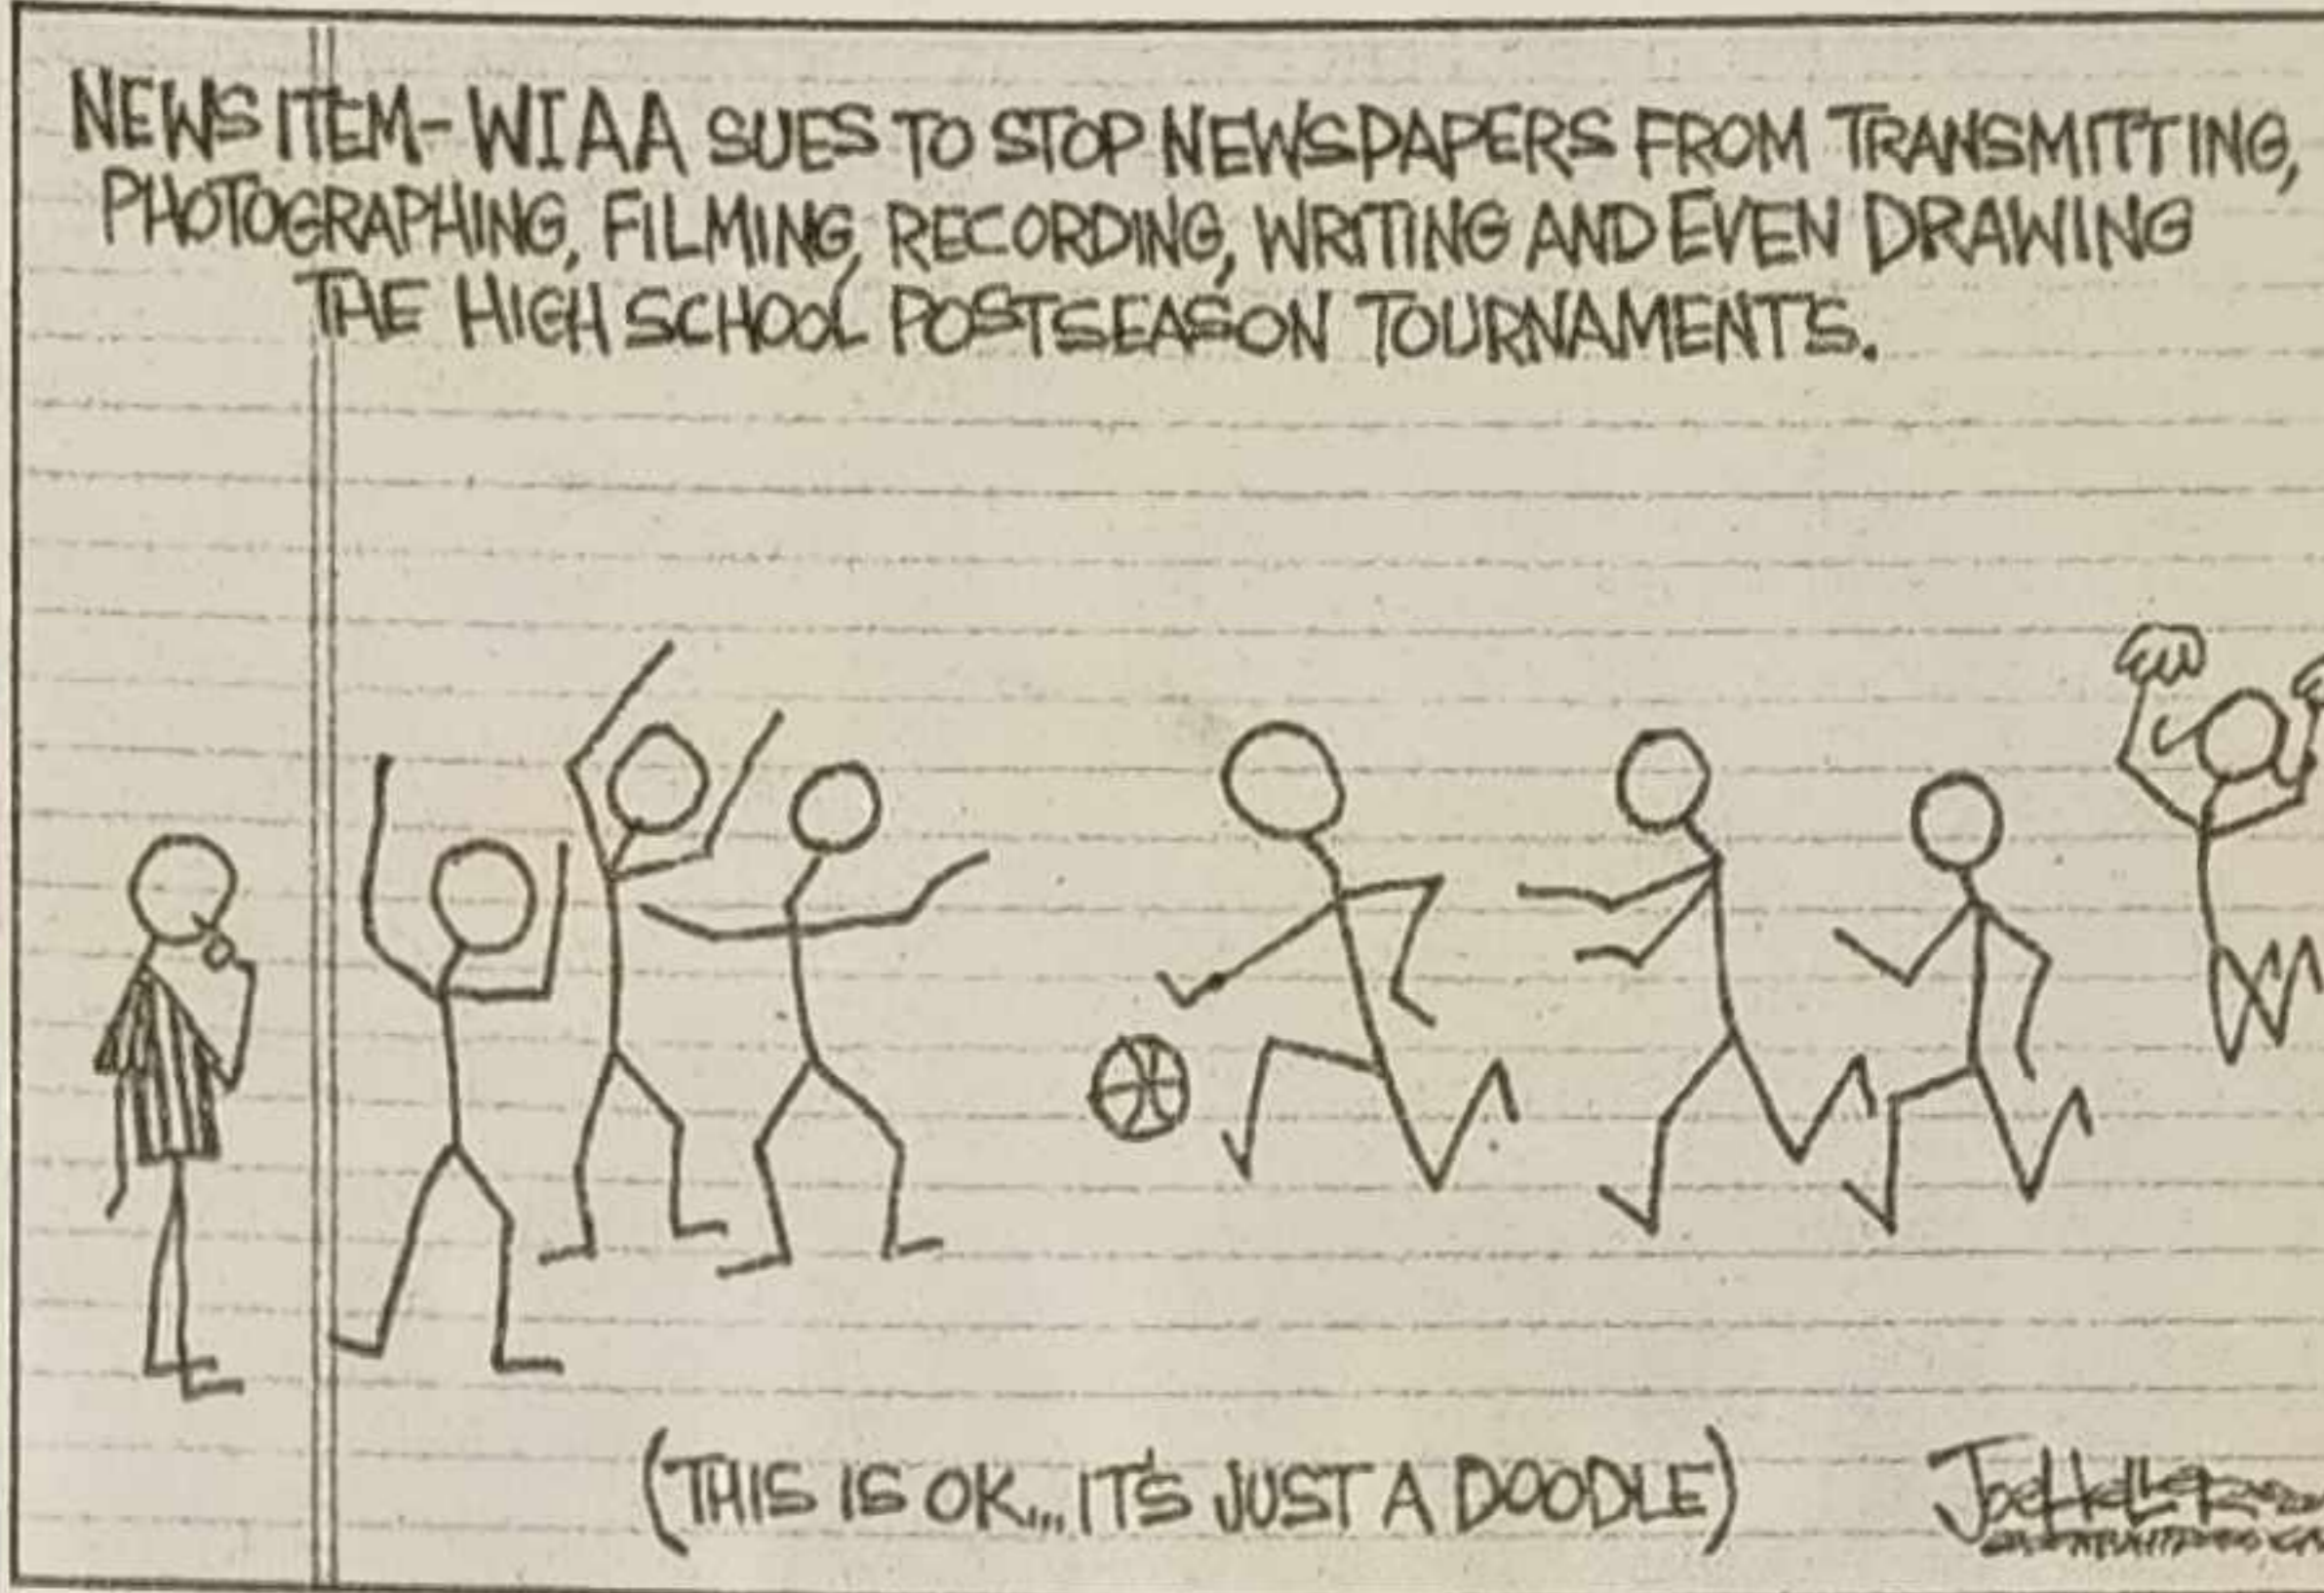 NEWS ITEM- WIAA SUES TO STOP NEWSPAPERS FROM TRANSMITTING,
PHOTOGRAPHING, FILMING, RECORDING, WRITING AND EVEN DRAWING
THE HIGH SCHOOL POSTSEASON TOURNAMENTS.
(THIS IS OK... IT'S JUST A DOODLE)
Joe Heller